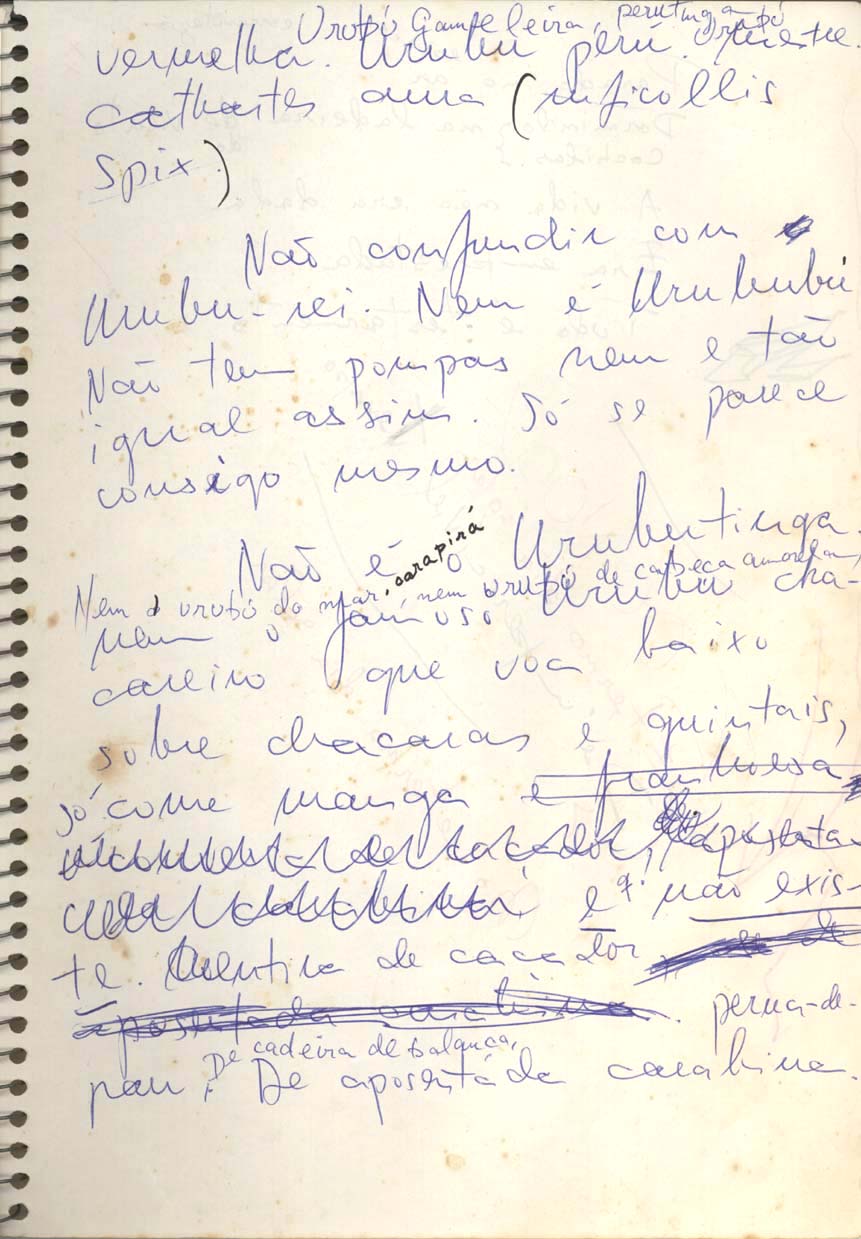 Urubú Gameleira, perutinga
vermelha. Urubu perú. Urubú mestre.
Cathartes aura (ruficollis
Spix)
Não confundir com
Urubu-rei. Nem é Urububú
Não tem pompas nem é tão
igual assim. Só se parece
consigo mesmo.
Não é o Urubutinga.
carapirá
Nem o urubú do mar, nem urubú de cabeça amarela,
nem o famoso Urubu cha-
careiro que voa baixo
sobre chacaras e quintais,
só come manga e framboesa
e q. não exis-
te. Mentira de caçador
aposentada carabina. perna-de-
De cadeira de balança,
pau. De aposentáda carabina.